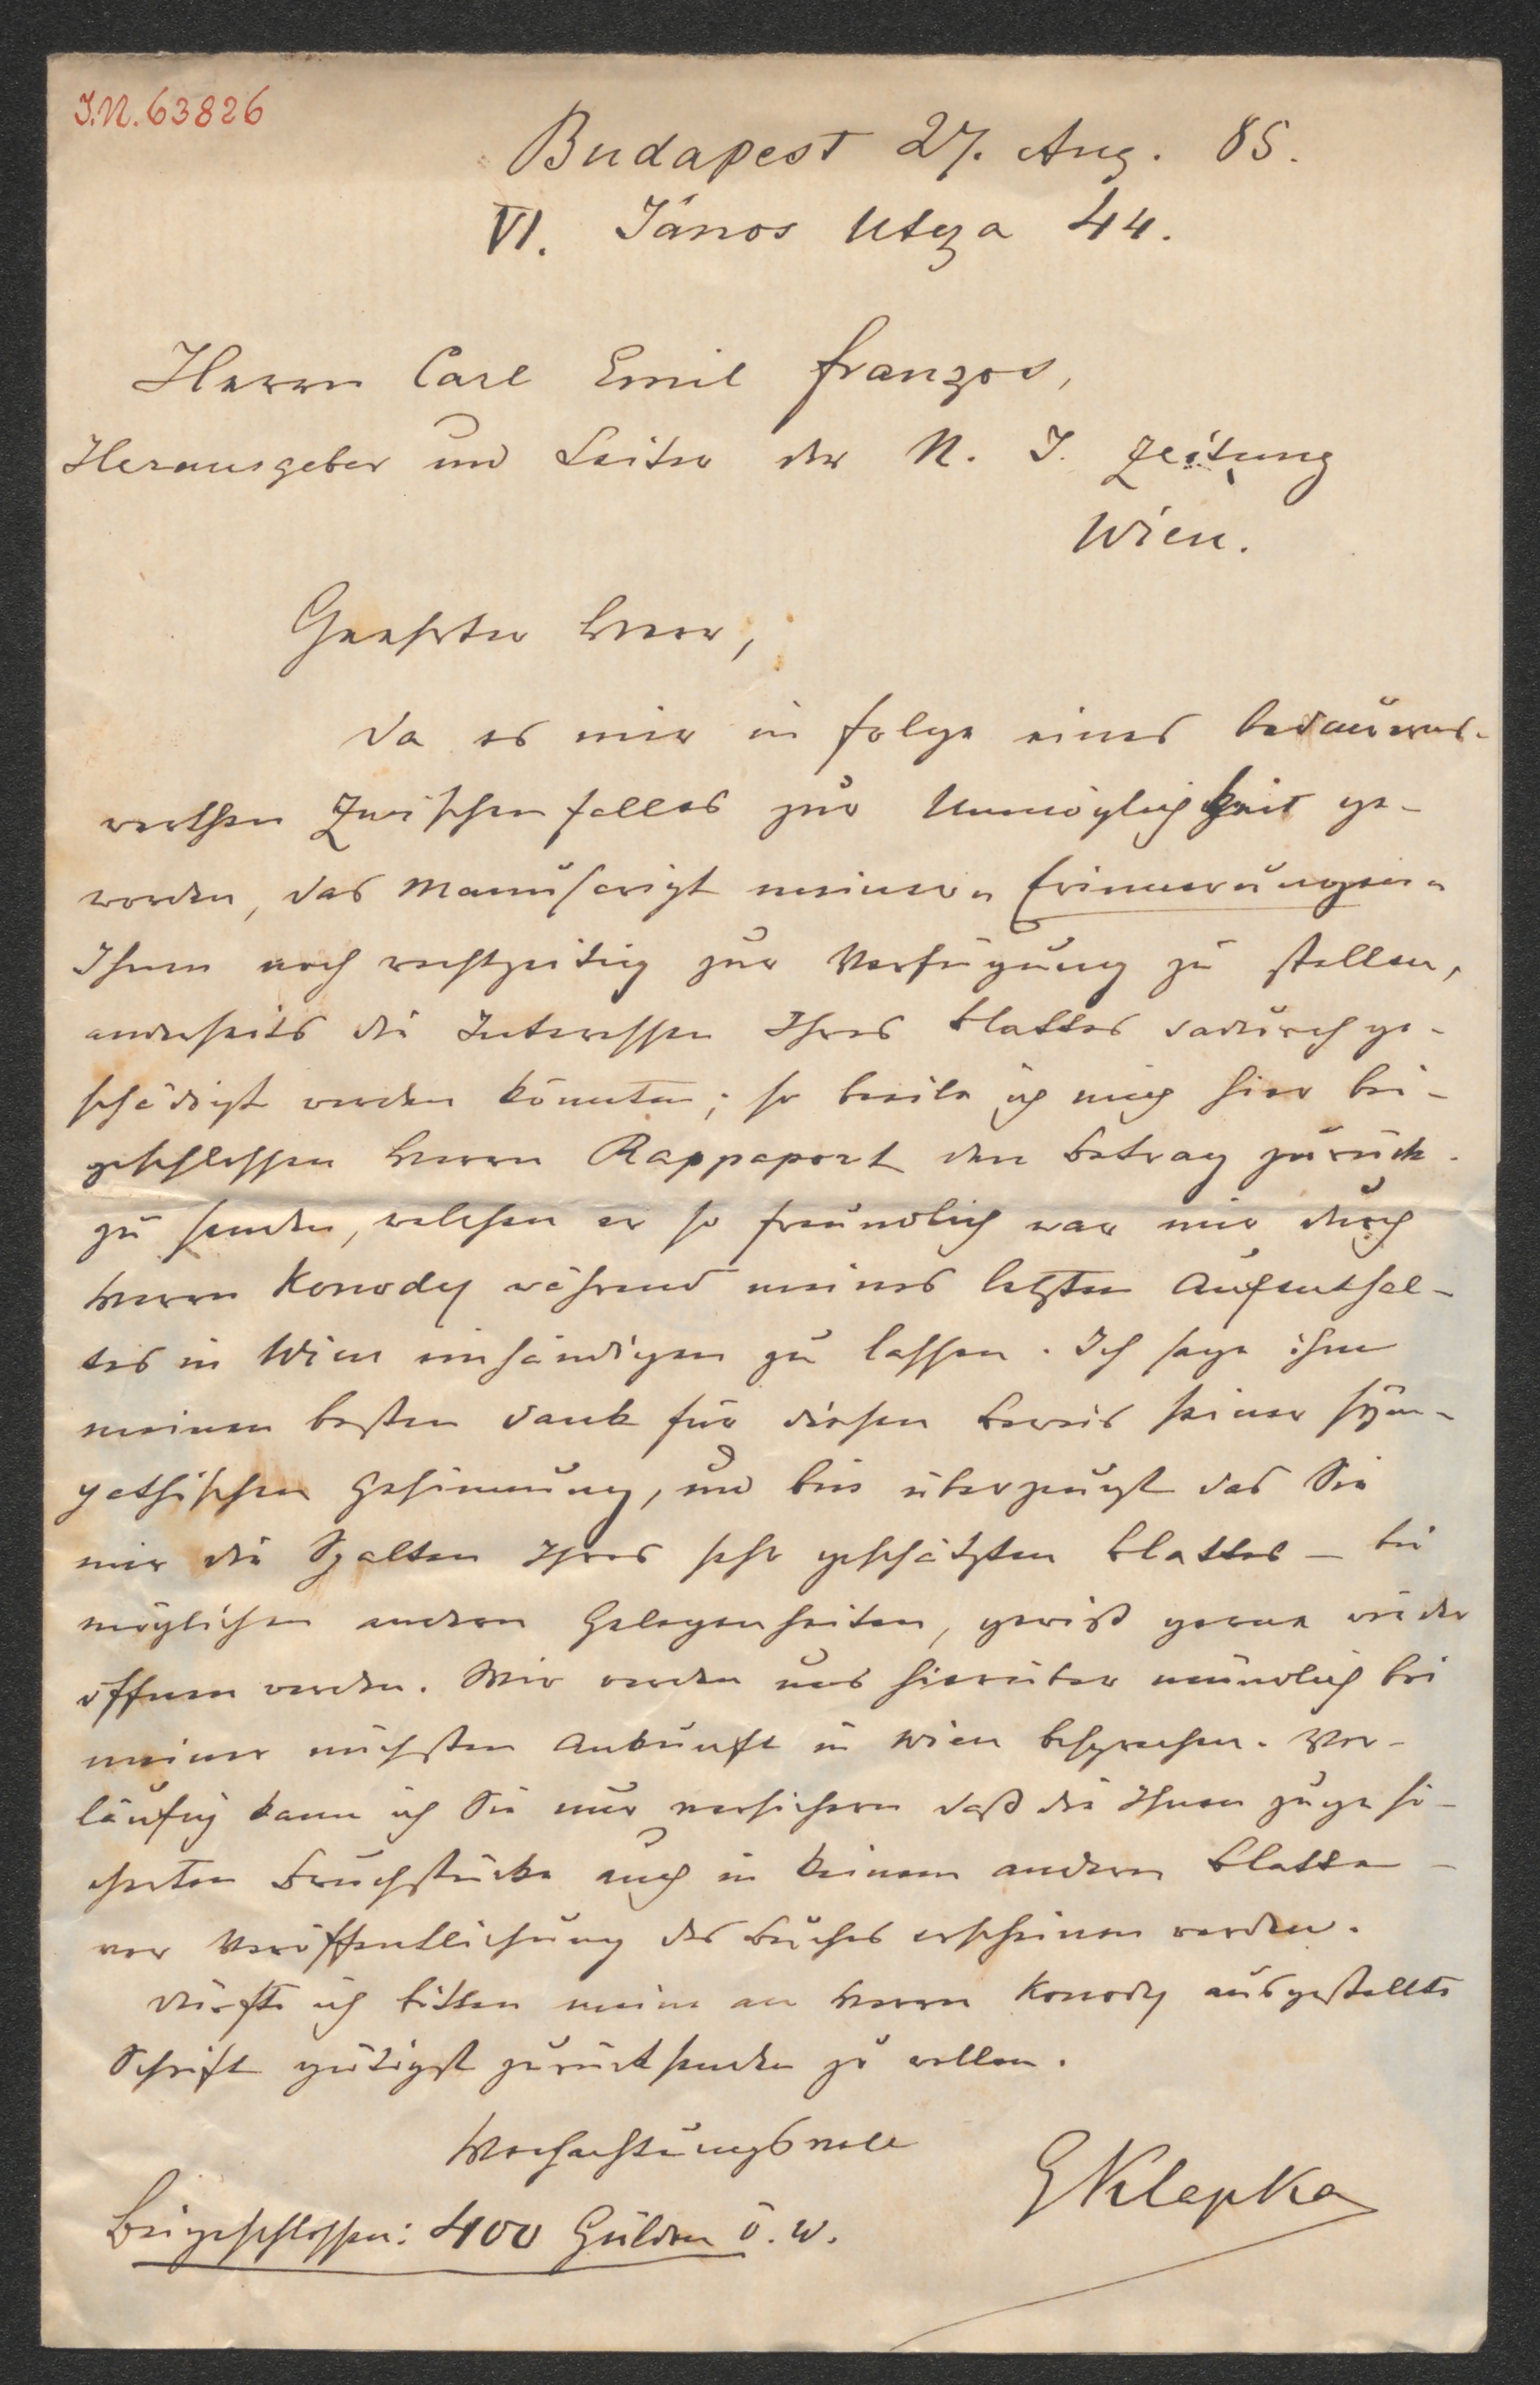 I.N. 63826
Budapest 27. Aug. 85.
VI. János Utcza 44.
Herrn Carl Emil Franzos,
Herausgeber und Leiter der N. I. Zeitung
Wien.
Geehrter Herr,
Da es mir in Folge eines bedauerns-
werthen Zwischenfalles zur Unmöglichkeit ge-
worden, das Manuscript meiner „Erinnerungen“
Ihnen noch rechtzeitig zur Verfügung zu stellen,
anderseits die Interessen Ihres Blattes dadurch ge-
schädigt werden könnten; so beeile ich mich hier bei-
geschlossen Herrn Rappaport den Betrag zurück-
zu senden, welchen er so freundlich war mir durch
Herrn Konody während meines letzten Aufenthal-
tes in Wien einhändigen zu lassen. Ich sage ihm
meinen besten Dank für diesen Beweis seiner sym-
pathischen Gesinnung, und bin überzeugt das Sie
mir die Spalten Ihres sehr geschätzten Blattes – bei
möglichen andern Gelegenheiten, gewiß gerne wieder
öffnen werden. Wir werden uns hierüber mündlich bei
meiner nächsten Ankunft in Wien besprechen. Vor-
läufig kann ich Sie nur versichern daß die Ihnen zugesi-
cherten Bruchstücke auch in keinem andern Blatte –
vor Veröffentlichung des Buches erscheinen werden.
Dürfte ich bitten meine an Herrn Konody ausgestellte
Schrift gütigst zurücksenden zu wollen.
Hochachtungsvoll
GKlapka
Beigeschlossen: 400 Gulden ö. W.